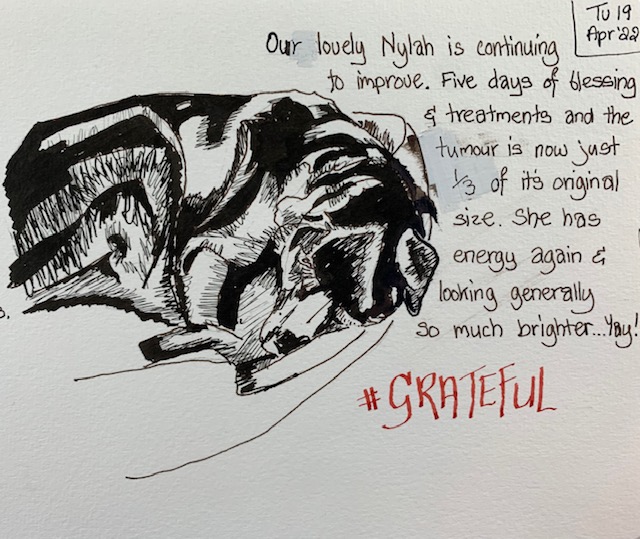 Tu 19
Apr'22
Our lovely Nylah is continuing
to improve. Five days of blessing
& treatments and the
tumour is now just
1/3 of it's original
size. She has
energy again &
looking generally
so much brighter...Yay!
#GRATEFUL